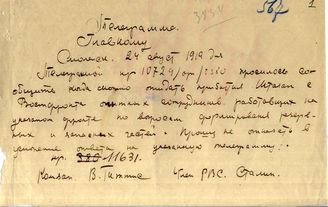 3834
567
1
Телеграмма.
Главкому
Смоленск. 24 август 1919 дня
Телеграммой нр 10724/ просилось со-
общить когда можно ожидать прибытия с
Востфронта опытных сотрудников, работавших на
указанном фронте по вопросам формирования резерв-
ных и запасных частей. Прошу не отказать в
ответа на указанную телеграмму.
нр. 380 11631.
Комзап В. Гиттис Член РВС. Сталин.